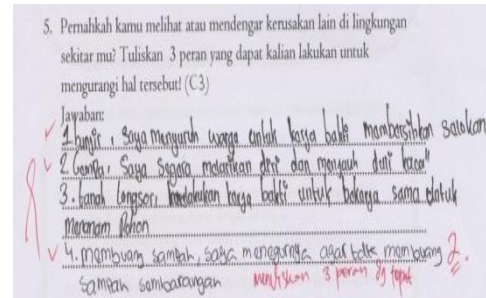 5. Pernahkah kamu melihat atau mendengar kerusakan lain di lingkungan
sekitar mu? Tuliskan 3 peran yang dapat kalian lakukan untuk
mengurangi hal tersebut! (C3)
Jawaban:
1. banjir, saya menyuruh warga untuk kerja bakti membersihkan selokan
2. Gempa, Saya Segera melarikan diri dan menjauh dari kaca"
3. tanah longsor, melakukan kerja bakti untuk bekerja sama untuk
Menanam Pohon
4. membuang sampah, saya menegurnya agar tidak membuang 2
sampah sembarangan menuliskan 3 peran dg tepat